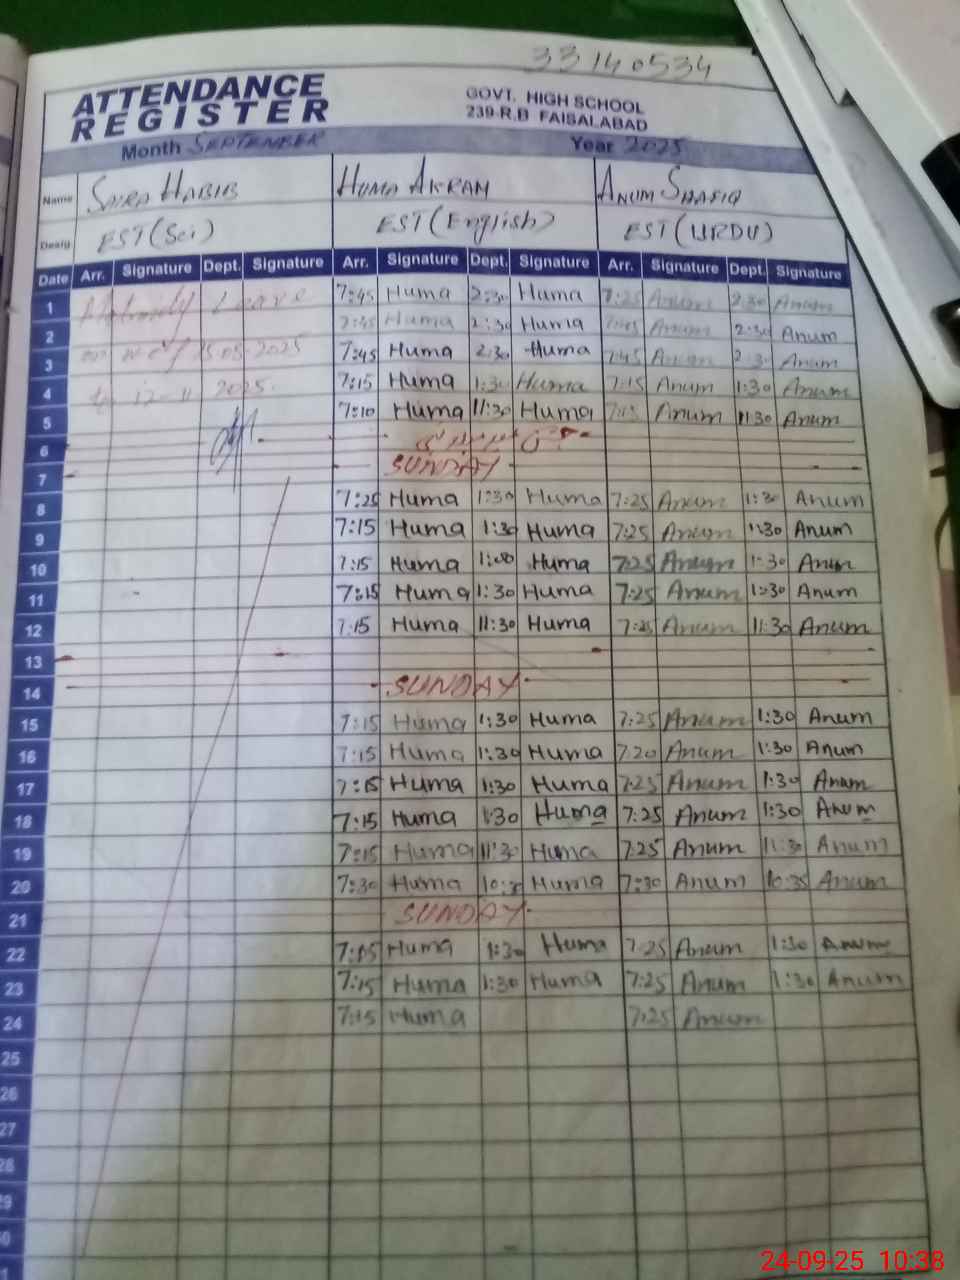 33140534
ATTENDANCE REGISTER
GOVT. HIGH SCHOOL
239-R.B FAISALABAD
Month SEPTEMBER Year 2025
Name SAIRA HABIB HUMA AKRAM ANUM SHAFIQ
Desig EST (Sci) EST (English) EST (URDU)
Date Arr. Signature Dept. Signature Arr. Signature Dept. Signature Arr. Signature Dept. Signature
1 Leave 7:45 Huma 2:30 Huma 7:25 Anum 2:30 Anum
2 7:45 Huma 2:30 Huma Anum 2:30 Anum
3 2025 7:45 Huma 2:30 Huma 7:45 Anum 2:30 Anum
4 2025 7:15 Huma 1:30 Huma 7:15 Anum 1:30 Anum
5 7:10 Huma 11:30 Huma 7:15 Anum 11:30 Anum
6
7 SUNDAY
8 7:25 Huma 1:30 Huma 7:25 Anum 1:30 Anum
9 7:15 Huma 1:30 Huma 7:25 Anum 1:30 Anum
10 7:15 Huma 1:00 Huma 7:25 Anum 1:30 Anum
11 7:15 Huma 1:30 Huma 7:25 Anum 1:30 Anum
12 7:15 Huma 11:30 Huma 7:25 Anum 11:30 Anum
13
14 SUNDAY
15 7:15 Huma 1:30 Huma 7:25 Anum 1:30 Anum
16 7:15 Huma 1:30 Huma 7:20 Anum 1:30 Anum
17 7:15 Huma 1:30 Huma 7:25 Anum 1:30 Anum
18 7:15 Huma 1:30 Huma 7:25 Anum 1:30 Anum
19 7:15 Huma 11:30 Huma 7:25 Anum 11:30 Anum
20 7:30 Huma 10:30 Huma 7:30 Anum 10:35 Anum
21 SUNDAY
22 7:15 Huma 1:30 Huma 7:25 Anum 1:30 Anum
23 7:15 Huma 1:30 Huma 7:25 Anum 1:30 Anum
24 7:15 Huma 7:25 Anum
25
26
27
28
24-09-25 10:38